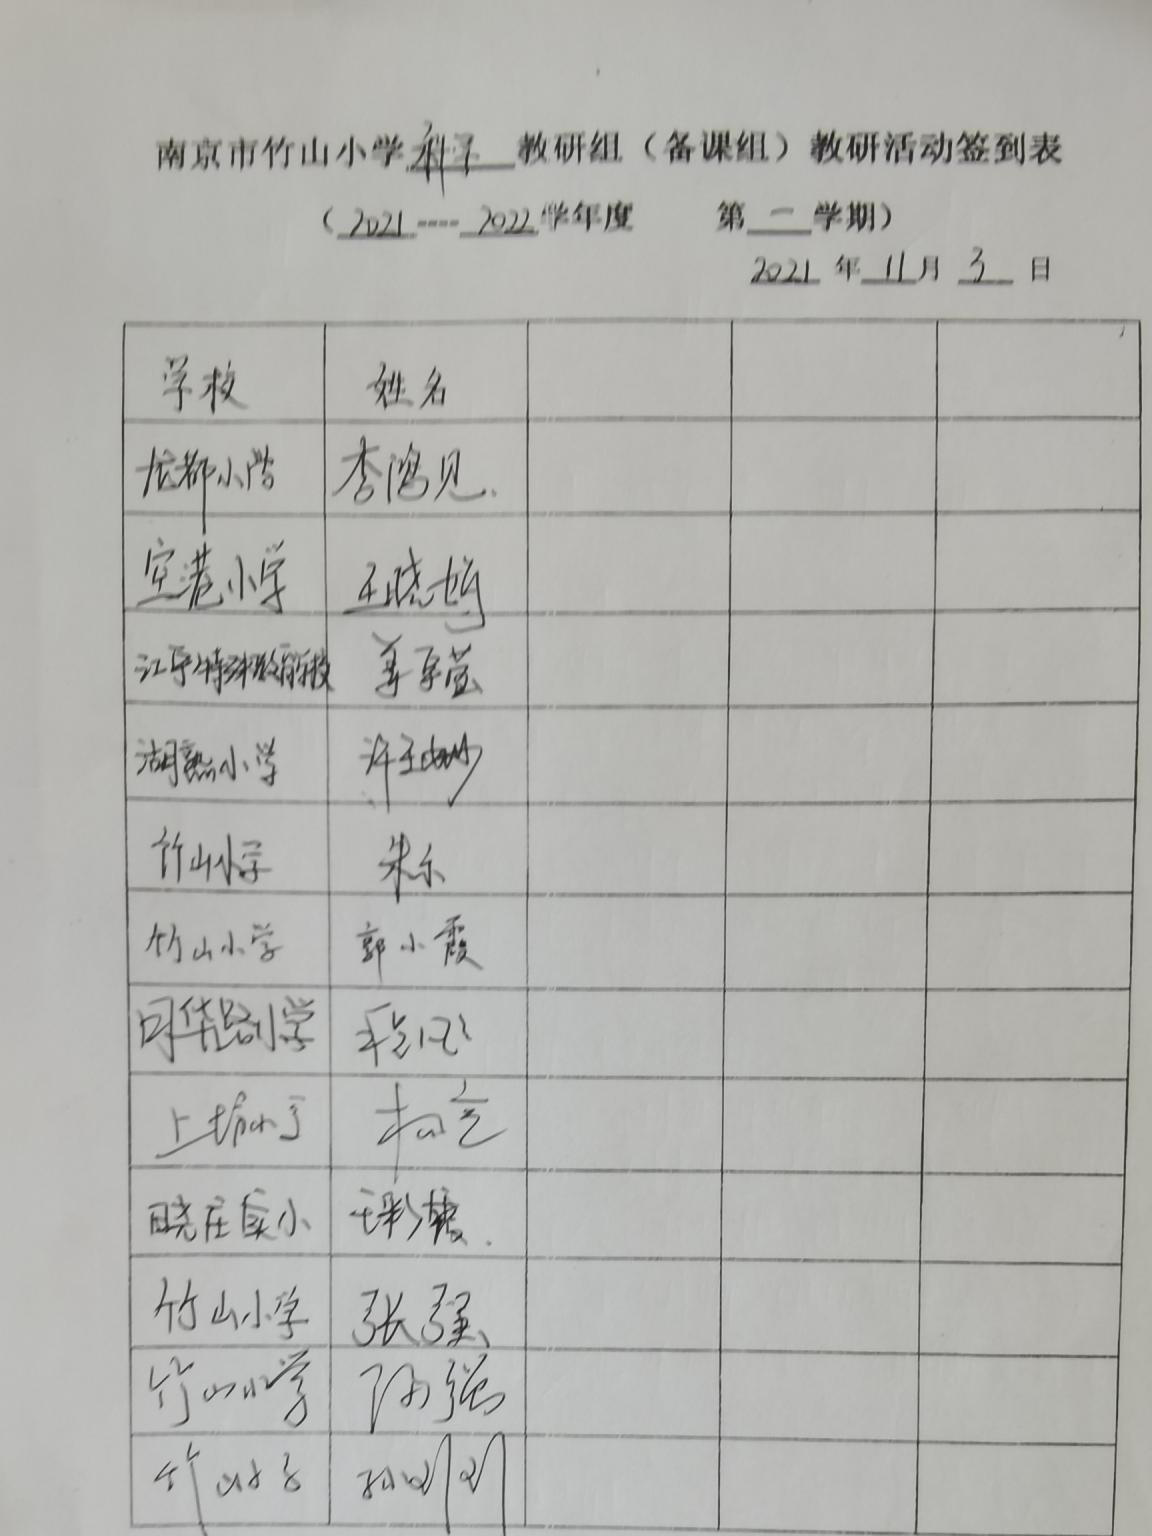 南京市竹山小学 科学 教研组（备课组）教研活动签到表
（2021----2022学年度 第一学期）
2021 年 11月 3 日
学校 姓名
龙都小学 李鸿见
空港小学 王晓娟
江宁特殊教育学校
湖熟小学
竹山小学 朱尔
竹山小学 郭小霞
月华路小学 程凤
上坊小学
晓庄实小
竹山小学 张强
竹山小学 陈强
竹山小学 孙刚刚